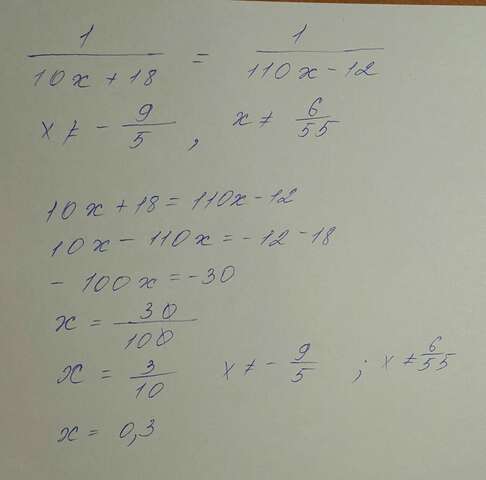 1/(10x + 18) = 1/(110x - 12)
x ≠ - 9/5 , x ≠ 6/55
10x + 18 = 110x - 12
10x - 110x = -12 - 18
- 100x = -30
x = 30/100
x = 3/10 x ≠ - 9/5 ; x ≠ 6/55
x = 0,3